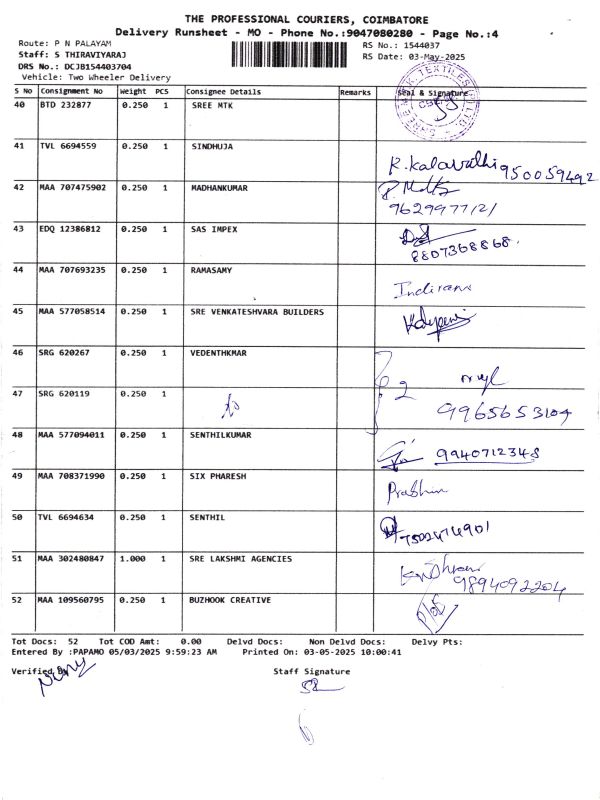 THE PROFESSIONAL COURIERS, COIMBATORE
Delivery Runsheet - MO - Phone No.:9047080280 - Page No.:4
Route: P N PALAYAM
RS No.: 1544037
Staff: S THIRAVIYARAJ
RS Date: 03-May-2025
DRS No.: DCJB154403704
Vehicle: Two Wheeler Delivery
S No Consignment No Weight PCS Consignee Details Remarks Seal & Signature
40 BTD 232877 0.250 1 SREE MTK
41 TVL 6694559 0.250 1 SINDHUJA
K.Kalavathi 950059492
42 MAA 707475902 0.250 1 MADHANKUMAR
9629977121
43 EDQ 12386812 0.250 1 SAS IMPEX
8807368868.
44 MAA 707693235 0.250 1 RAMASAMY
Indirani
45 MAA 577058514 0.250 1 SRE VENKATESHVARA BUILDERS
46 SRG 620267 0.250 1 VEDENTHKMAR
2
47 SRG 620119 0.250 1
9965653104
48 MAA 577094011 0.250 1 SENTHILKUMAR
9940712348
49 MAA 708371990 0.250 1 SIX PHARESH
Prabhu
50 TVL 6694634 0.250 1 SENTHIL
51 MAA 302480847 1.000 1 SRE LAKSHMI AGENCIES
9894092204
52 MAA 109560795 0.250 1 BUZHOOK CREATIVE
Tot Docs: 52 Tot COD Amt: 0.00 Delvd Docs: Non Delvd Docs: Delvy Pts:
Entered By :PAPAMO 05/03/2025 9:59:23 AM Printed On: 03-05-2025 10:00:41
Verified By
Staff Signature